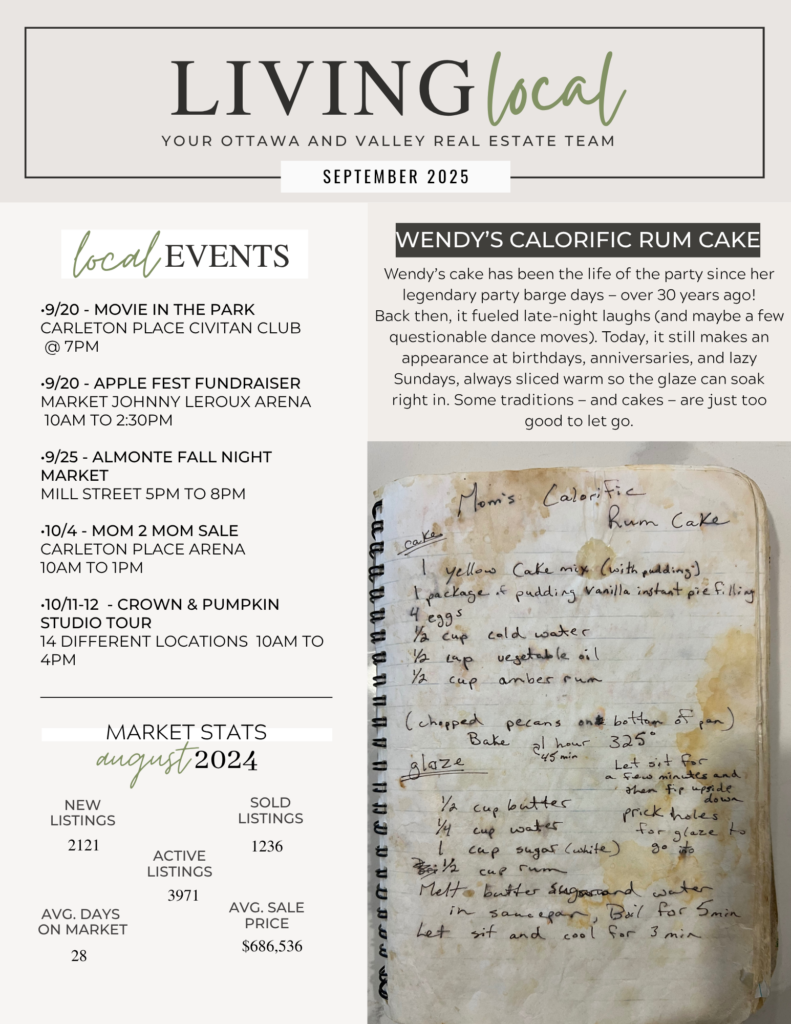 LIVING local
YOUR OTTAWA AND VALLEY REAL ESTATE TEAM
SEPTEMBER 2025
local EVENTS
•9/20 - MOVIE IN THE PARK
CARLETON PLACE CIVITAN CLUB
@ 7PM
•9/20 - APPLE FEST FUNDRAISER
MARKET JOHNNY LEROUX ARENA
10AM TO 2:30PM
•9/25 - ALMONTE FALL NIGHT
MARKET
MILL STREET 5PM TO 8PM
•10/4 - MOM 2 MOM SALE
CARLETON PLACE ARENA
10AM TO 1PM
•10/11-12 - CROWN & PUMPKIN
STUDIO TOUR
14 DIFFERENT LOCATIONS 10AM TO
4PM
MARKET STATS
august 2024
NEW
LISTINGS
2121
SOLD
LISTINGS
1236
ACTIVE
LISTINGS
3971
AVG. DAYS
ON MARKET
28
AVG. SALE
PRICE
$686,536
WENDY'S CALORIFIC RUM CAKE
Wendy's cake has been the life of the party since her
legendary party barge days – over 30 years ago!
Back then, it fueled late-night laughs (and maybe a few
questionable dance moves). Today, it still makes an
appearance at birthdays, anniversaries, and lazy
Sundays, always sliced warm so the glaze can soak
right in. Some traditions – and cakes – are just too
good to let go.
Mom's Calorific
Rum Cake
cake
1 yellow Cake mix (with pudding)
1 package of pudding vanilla instant pie filling
4 eggs
1/2 cup cold water
1/2 cup vegetable oil
1/2 cup amber rum
(chopped pecans on bottom of pan)
Bake 1 hour 325°
45 min
glaze
1/2 cup butter
1/4 cup water
1 cup sugar (white)
1/2 cup rum
Let sit for
a few minutes and
then flip upside
down
prick holes
for glaze to
go
Melt butter sugar and water
in saucepan, Boil for 5 min
Let sit and cool for 3 min